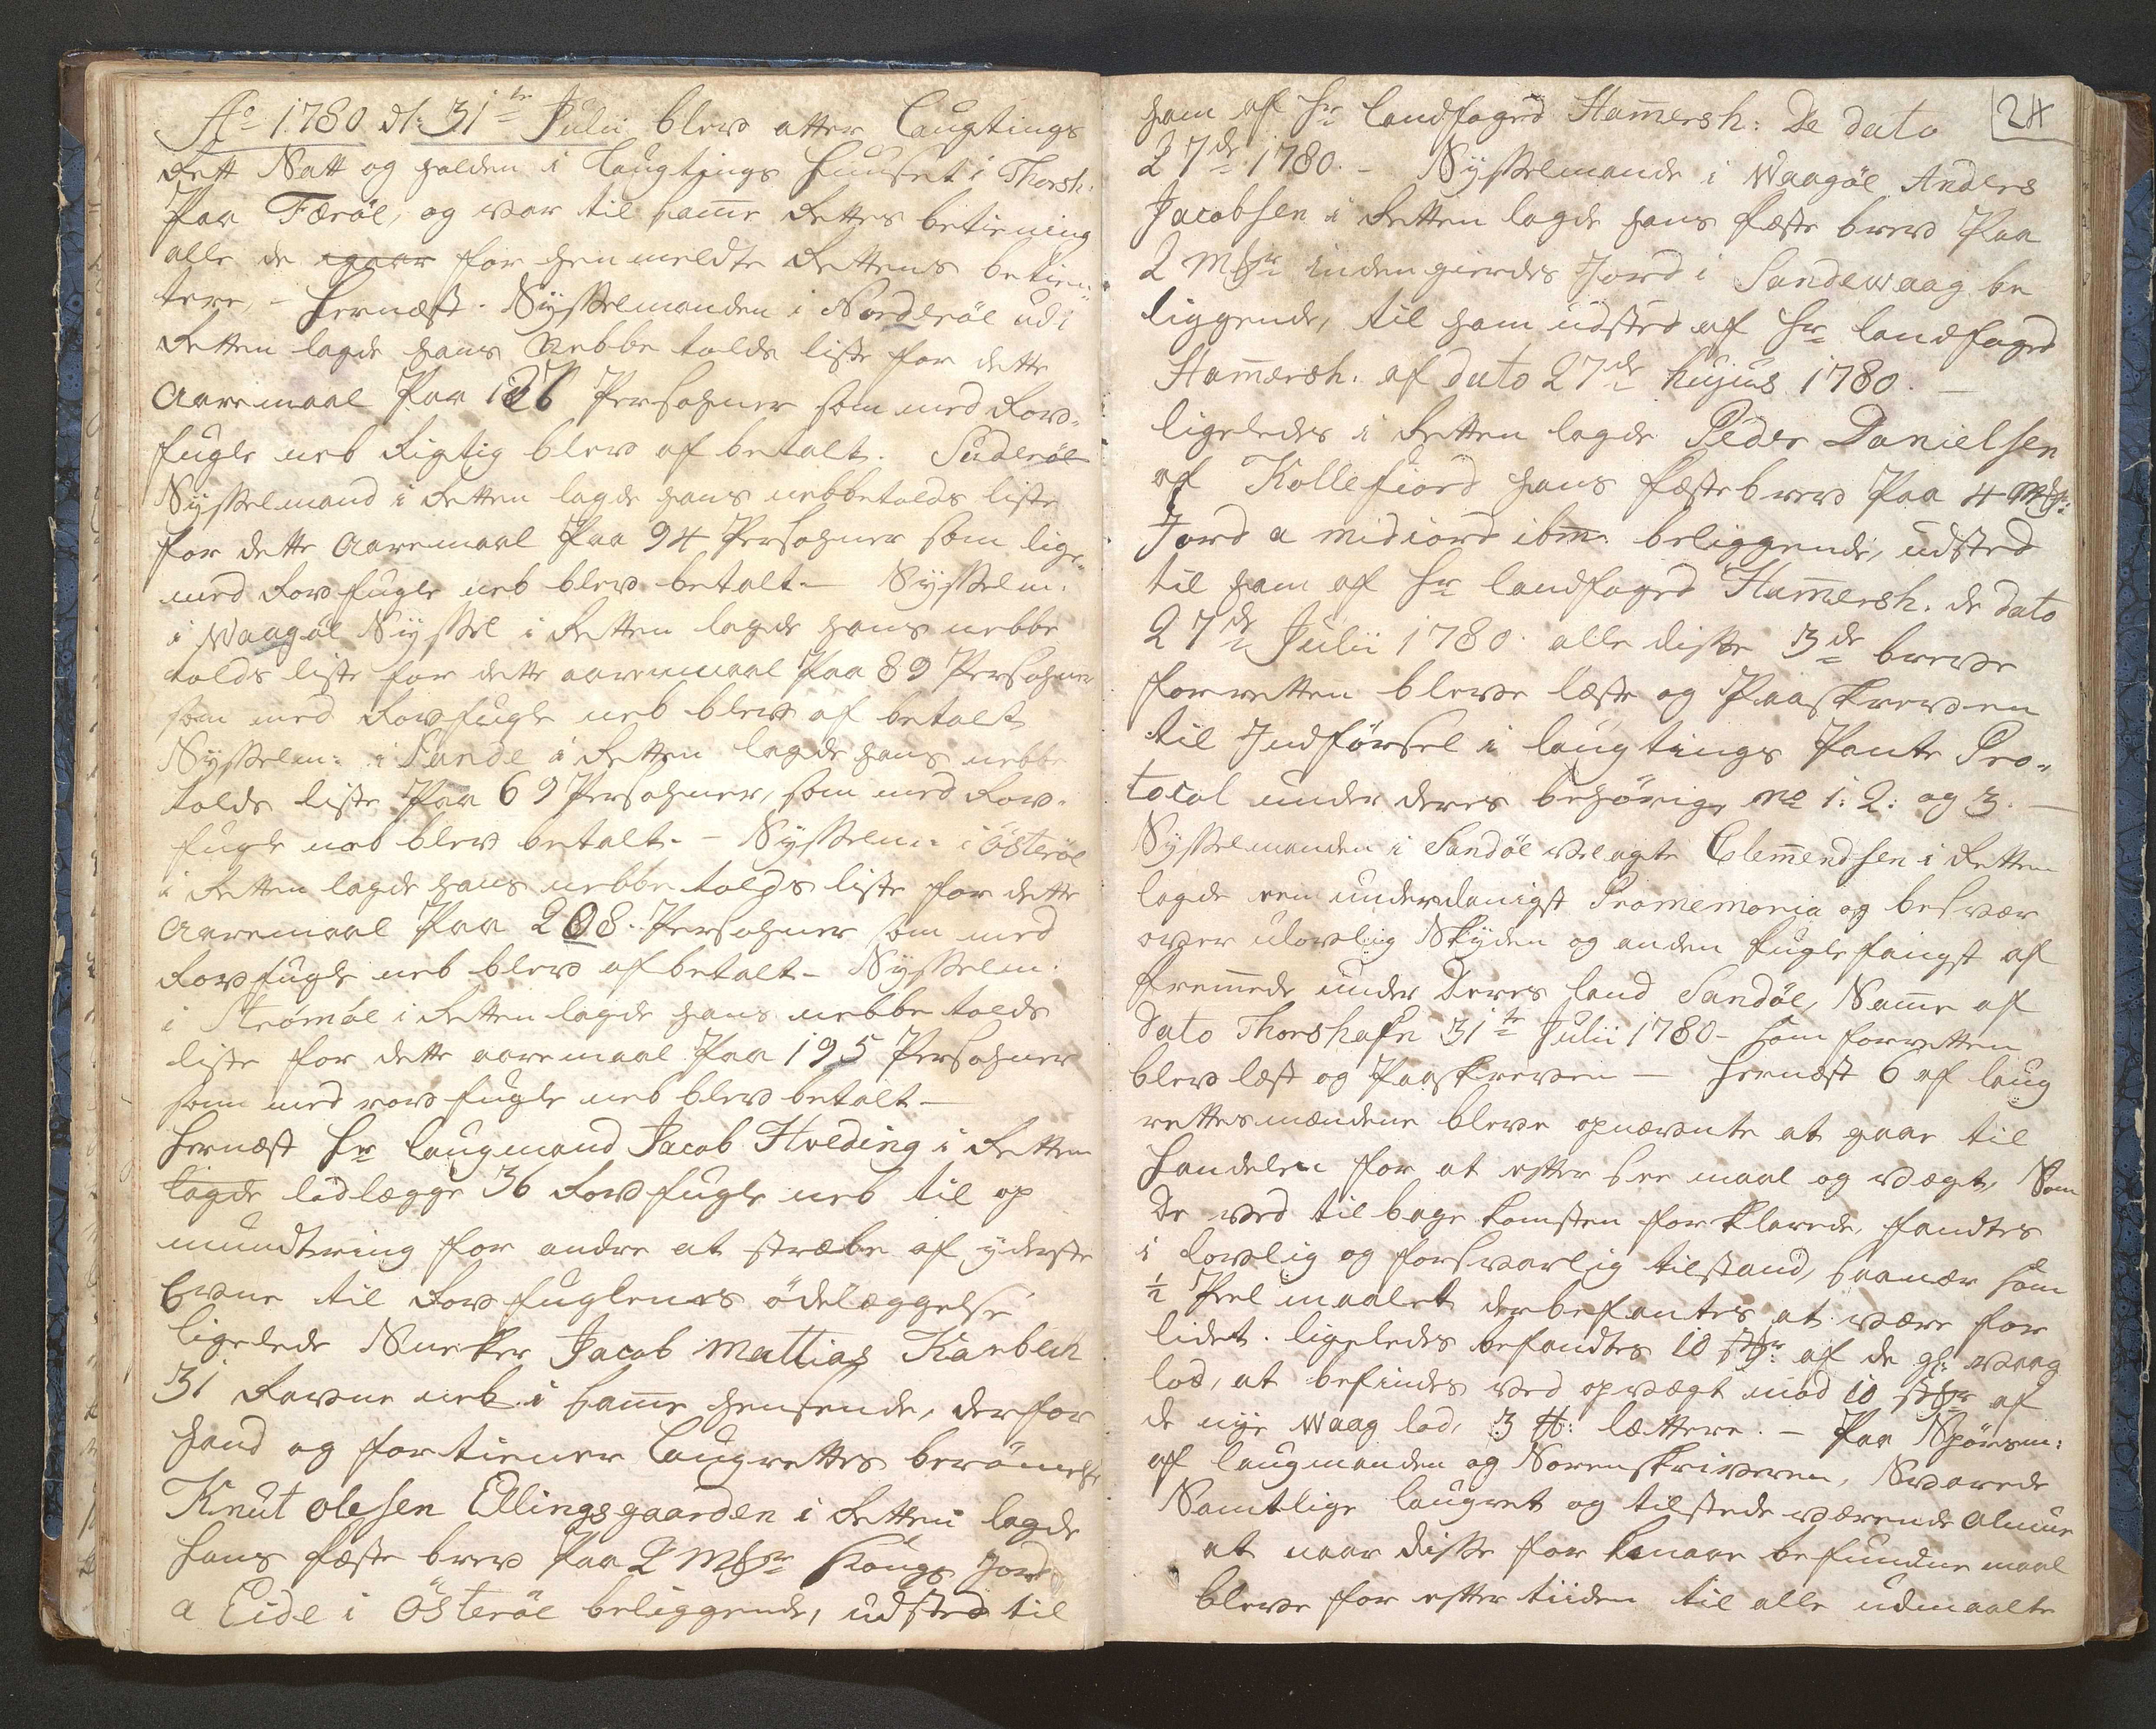 Ao 1780 d: 31te Julii blev atter Laugtings
Rett Satt og holden i Laugtings Huuset i Thorsh:
Paa Færöe, og var til samme Rettes betiening
alle de igaar for hen meldte Rettens betien-
tere, - Hernæst. Sysselmanden i Norderöe udi
Retten lagde hans Nebbe tolds liste for dette
Aaremaal Paa 126 Persohner som med Rov-
fugle neb Rigtig blev af betalt. Suderöe
Sysselmand i Retten lagde hans nebbetolds liste
for dette Aaremaal Paa 94 Persohner som lige-
med Rovfugle neb blev betalt. - Sysselm:
i Waagöe Syssel i Retten lagde hans nebbe
tolds liste for dette aaremaal Paa 89 Persohner
som med Rovfugle neb blev af betalt
Sysselm: i Sande i Retten lagde hans nebbe
tolds liste Paa 69 Persohner, som med Rov-
fugle neb blev betalt. - Sysselm: i Österöe
i Retten lagde hans nebbe tolds liste for dette
Aaremaal Paa 208. Persohner som med
Rovfugle neb blev afbetalt - Sysselm:
i Strömöe i Retten lagde hans nebbe tolds
liste for dette aaremaal Paa 195 Persohner
som med rov fugle neb blev betalt -
Hernæst Hr Laugmand Jacob Hveding i Retten
lagde lod lægge 36 Rovfugle neb til op
mundtring for andre at stræbe af yderste
Evne til Rov fuglenes ödelæggelse
ligelede Snecker Jacob Mattias Kárbech
31 Ravne neb i samme hensende, derfor
hand og fortiener Laugrettes berömmelse
Knut olesen Ellingsgaarden i Retten lagde
hans fæste brev Paa 2 Mkr Kongs Jord
a Eide i Österöe beliggende, udsted til
24
ham af Hr Landfoged Hamersh: De dato
27de 1780. - Sysselmande i Waagöe Anders
Jacobsen i Retten lagde hans fæste brev Paa
2 Mkr indengierdes Jord i Sandewaag be
liggende, til ham udsted af Hr landfoged
Hamersh. af dato 27de hujus 1780. -
ligeledes i Retten lagde Peder Danielsen
af Kollefiord hans fæstebrev Paa 4 Mk:
Jord a midiord ibm: beliggende, udsted
til ham af Hr landfoged Hamersh. de dato
27de Julii 1780. alle disse 3de breve
for retten bleve læste og Paaskreven
til Indförsel i laugtings Pante Pro-
tocol under deres behörige No 1: 2: og 3. -
Sysselmanden i Sandöe velagte Clemendsen i Retten
lagde een underdanigst Promemoria og besvær
over ulovlig Skyden og anden fuglefangst af
fremmede under Deres land Sandöe, Samme af
Dato Thorshafn 31te Julii 1780 - som forretten
blev læst og Paaskreven - Hernæst 6 af laug
rettesmændene bleve opnævnte at gaae til
Handelen for at efter see maal og vægt, Som
De ved tilbage komsten forklarede, fandtes
i lovlig og forsvarlig tilstand, saanær som
1/2 Pel maalet der befantes at være for
lidet. ligeledes befandtes 10 : af de gl: waag
lod, at befindes ved opvægt mod 10 af
de nye Waag lod, 3 ℔: lættere. - Paa Spörsm:
af laugmanden og Sorenskriveren, Svarede
Samtlige laugret og tilstede værende Almue
at naar disse for knaae befundne maal
bleve for eftertiiden til alle udmaalte